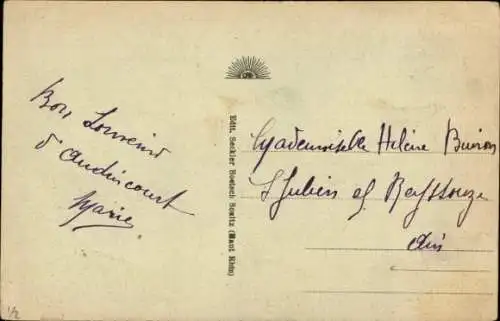 Bon Souvenir
d'Audincourt
Marie
Edit. Seckler Boetsch Soultz (Haut Rhin)
Mademoiselle Hélène Buiron
St Julien s/ Reyssouze
Ain
1/2